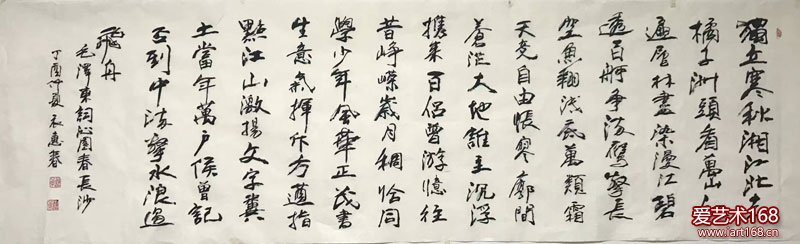 獨立寒秋湘江北去
橘子洲頭看萬山紅
遍層林盡染漫江碧
透百舸争流鷹擊長
空魚翔淺底萬類霜
天竞自由悵寥廓問
蒼茫大地誰主沉浮
攜來百侣曾游憶往
昔崢嶸歲月稠恰同
學少年風華正茂書
生意氣揮斥方遒指
點江山激揚文字糞
土當年萬户侯曾記
否到中流擊水浪遏
飛舟
毛澤東詞沁園春長沙
丁酉仲夏 惠春
爱艺术168
www.iart168.cn